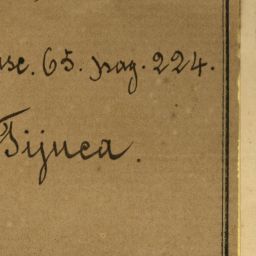 asc. 65. pag. 224.
Tijuca.